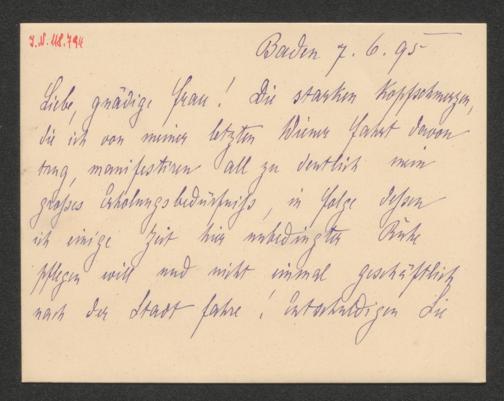 I.N. 118.794
Baden 7. 6. 95
Liebe, gnädige Frau! Die starken Kopfschmerzen,
die ich von meiner letzten Wiener Fahrt davon
trug, manifestiren all zu deutlich mein
großes Erholungsbedürfniß, in Folge dessen
ich einige Zeit hier unbedingter Ruhe
pflegen will und nicht einmal geschäftlich
nach der Stadt fahre! Entschuldigen Sie